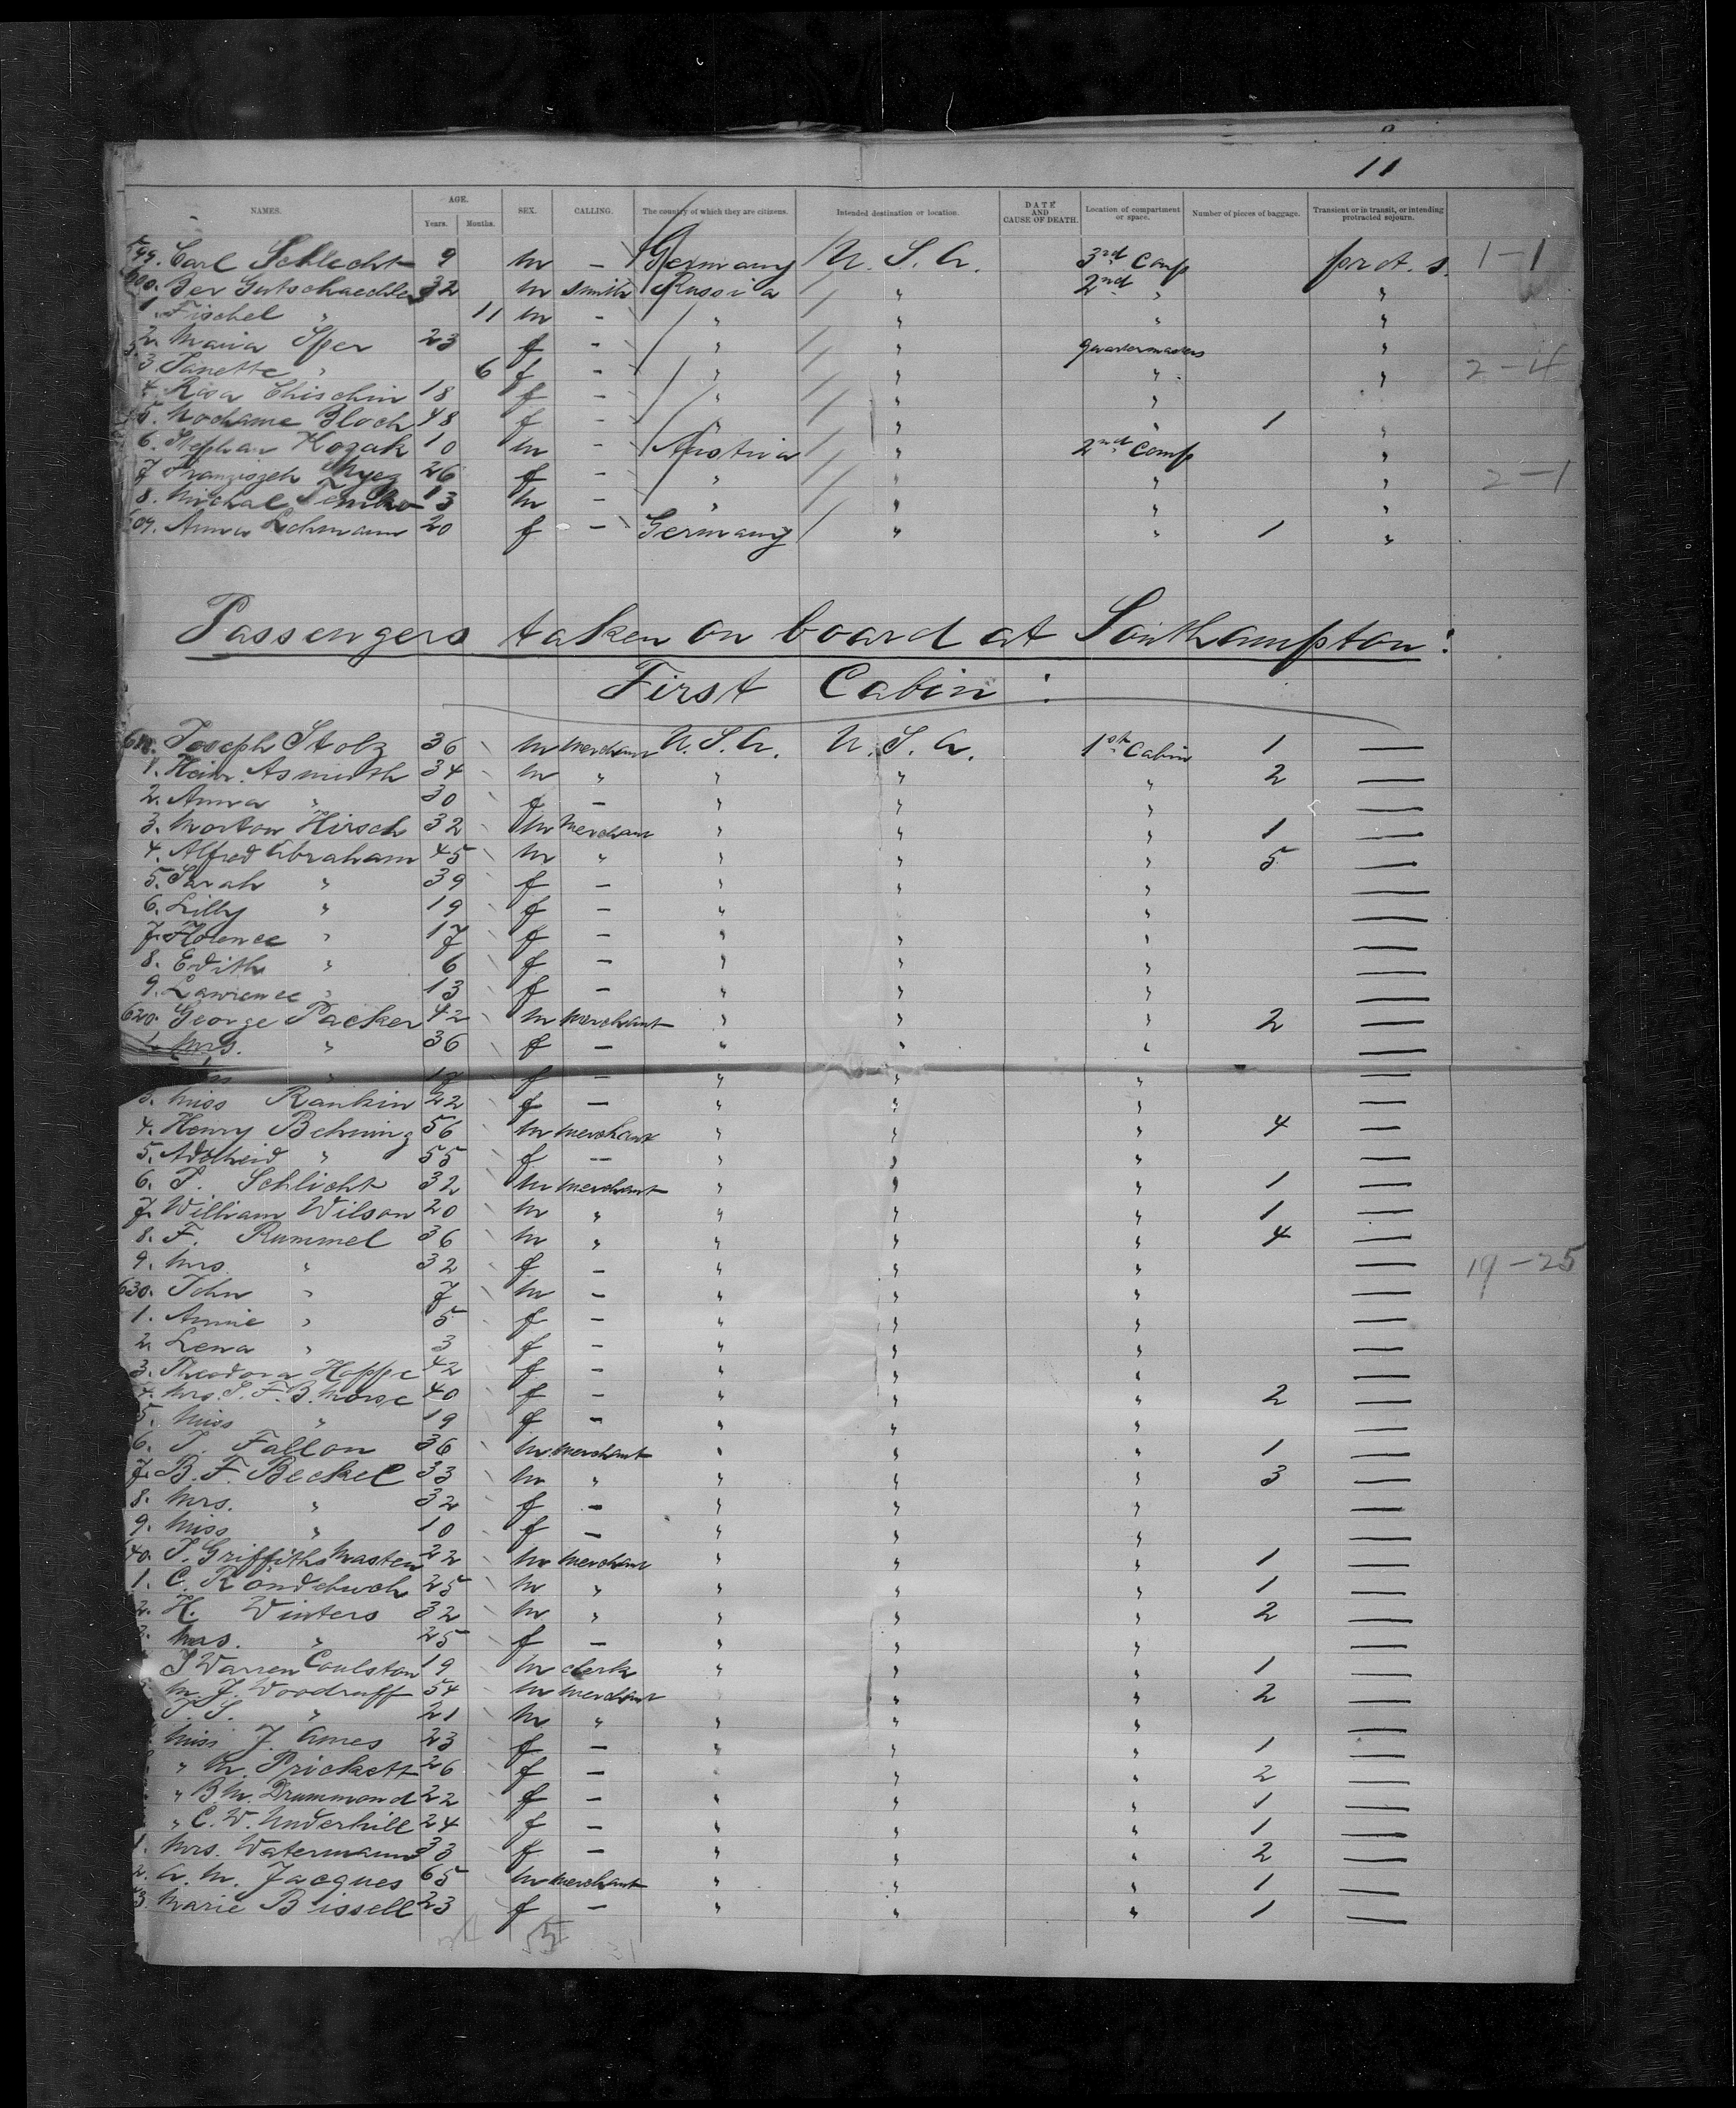 11
NAMES. AGE. Years. Months. SEX. CALLING. The country of which they are citizens. Intended destination or location. DATE AND CAUSE OF DEATH. Location of compartment or space. Number of pieces of baggage. Transient or in transit, or intending protracted sojourn.
599. Carl Schlecht 9 m — Germany U. S. A. 3rd Comp prot. s. 1-1
600. Ber 32 m smith Russia " 2nd " "
1. Fischel " 11 m — " " " "
2. Maria 23 f — " " quartermasters "
3. Janette " 6 f — " " " " 2-4
4. Rosa Chischin 18 f — " " "
5. Nochame Bloch 48 f — " " " 1 "
6. Stephan Kozak 10 m — Austria " 2nd Comp "
7. 26 f — " " " " 2-1
8. Michal 13 m — " " " "
609. Anna Lehmann 20 f — Germany " " 1 "
Passengers taken on board at Southampton:
First Cabin:
610. Joseph Stolz 36 m merchant U. S. A. U. S. A. 1st Cabin 1 —
1. Heinr. Asmuth 34 m " " " " 2 —
2. Anna " 30 f — " " " —
3. Morton Hirsch 32 m merchant " " " 1 —
4. Alfred Abraham 45 m " " " " 5 —
5. Sarah " 39 f — " " " —
6. Lilly " 19 f — " " —
7. Florence " 17 f — " " " —
8. Edith " 6 f — " " " —
9. Lawrence " 13 f — " " " —
620. George Packer 42 m merchant " " " 2 —
1. Mrs. " 36 f — " " " —
" f — " " " —
3. Miss Rankin 22 f — " " " —
4. Henry Behning 56 m merchant " " " 4 —
5. Adelheid " 55 f — " " " —
6. J. Schlicht 32 m merchant " " " 1 —
7. William Wilson 20 m " " " " 1 —
8. F. Rummel 36 m " " " " 4 —
9. Mrs. " 32 f — " " " — 19-25
630. John " 7 m — " " " —
1. Annie " 5 f — " " " —
2. Lena " 3 f — " " " —
3. Theodora Hoppe 42 f — " " " —
4. Mrs. S. F. B. Morse 40 f — " " " 2 —
5. Miss " 19 f — " " " —
6. J. Fallon 36 m merchant " " " 1 —
7. B. F. Beckel 33 m " " " " 3 —
8. Mrs. " 32 f — " " " —
9. Miss " 10 f — " " " —
640. J. Griffiths Masten 22 m merchant " " " 1 —
1. C. Röndebusch 25 m " " " " 1 —
2. H. Winters 32 m " " " " 2 —
3. Mrs. " 25 f — " " " —
J Warren Coulston 19 m clerk " " " 1 —
M. J. Woodruff 54 m merchant " " 2 —
J. S. " 21 m " " " " —
Miss J. Ames 23 f — " " " 1 —
" M. Prickett 26 f — " " 2 —
" B. M. Drummond 22 f — " " " 1 —
" C. W. Underhill 24 f — " " " 1 —
1. Mrs. Watermann 33 f — " " " 2 —
2. A. M. Jacques 65 m merchant " " " 1 —
3. Marie Bissell 23 f — " " " 1 —